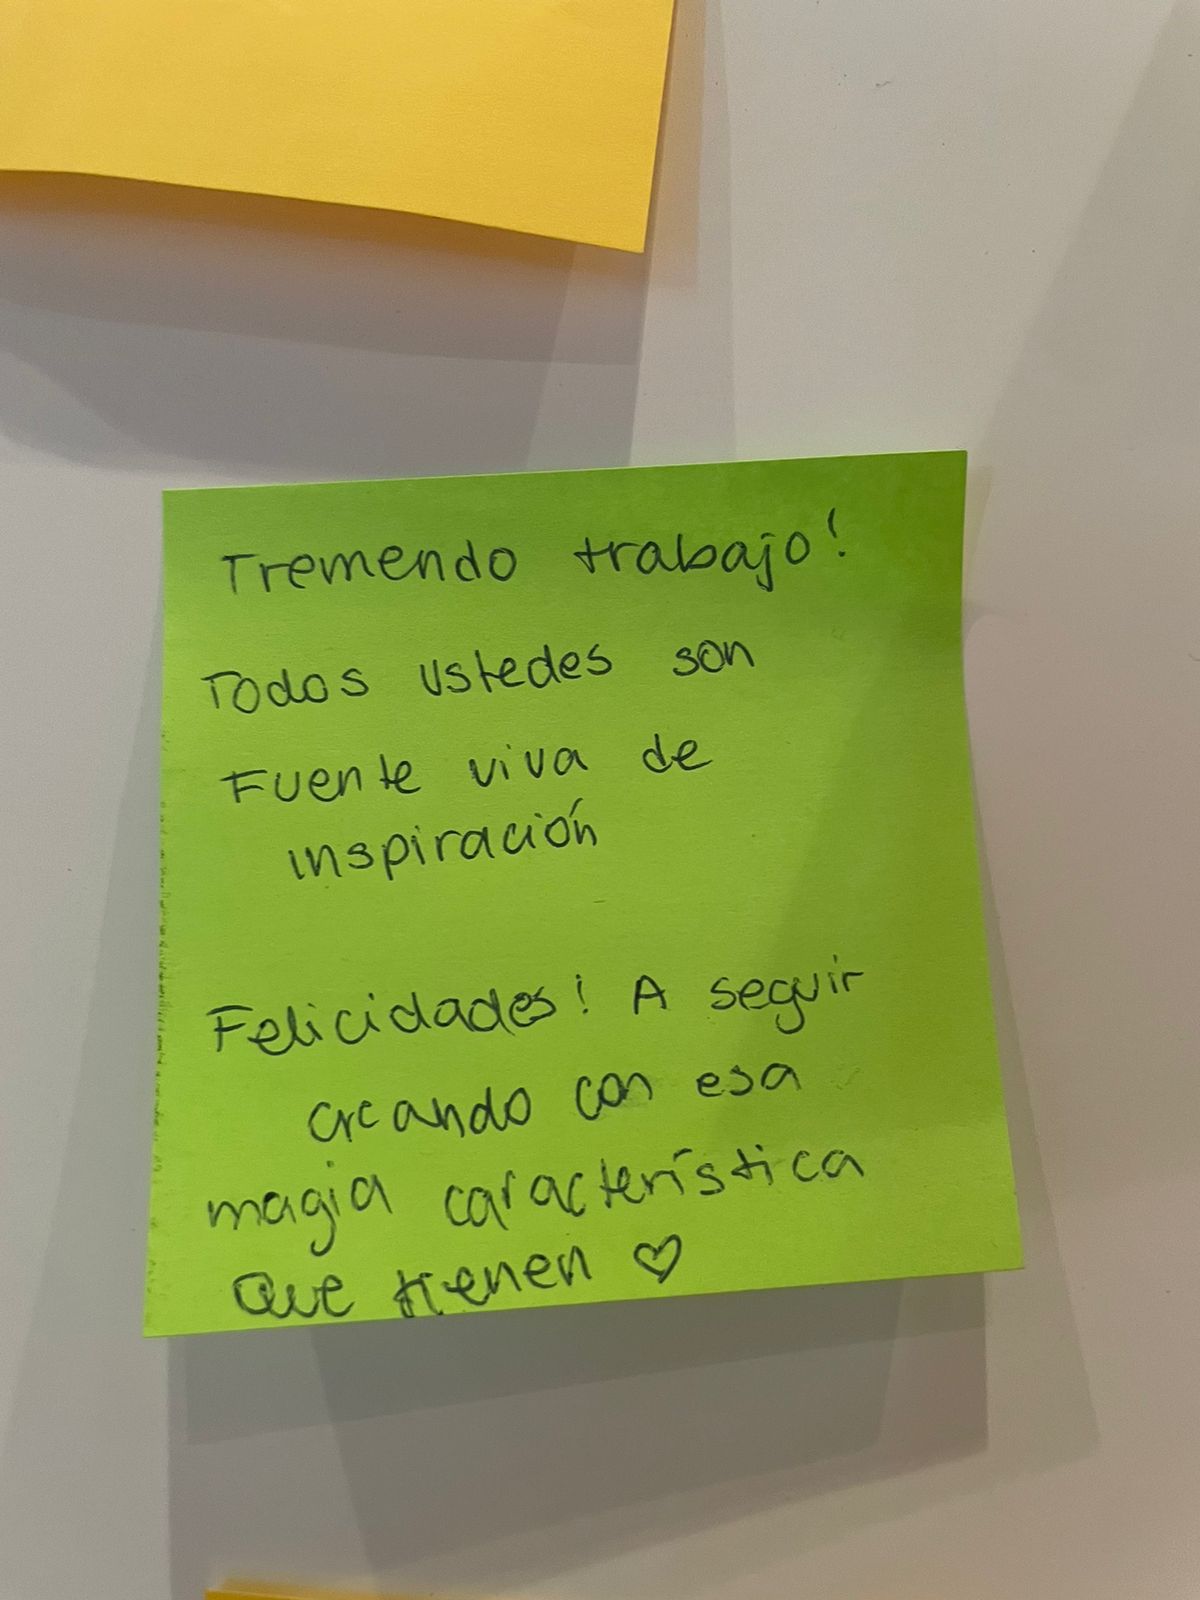 Tremendo trabajo!
Todos ustedes son
Fuente viva de
inspiración
Felicidades! A seguir
creando con esa
magia característica
Que tienen ♡